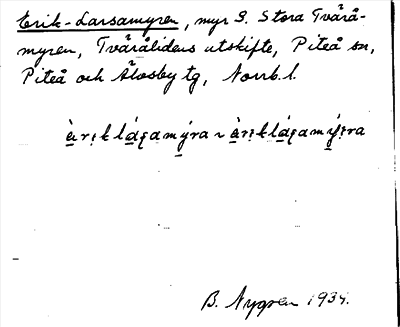 Erik-Larsamyren, myr S. Stora Tvärå-
myren, Tväråliden s utskifte, Piteå sn,
Piteå och Älvsby tg, Norrb. l.
B. Nygren 1934.